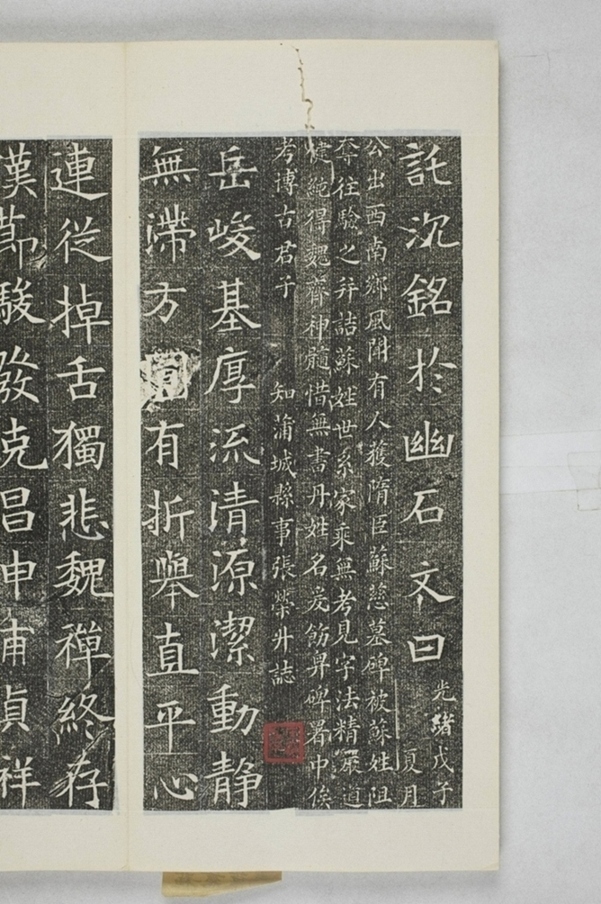 託沉銘於幽石文曰光緒戊子夏月
公出西南鄉風聞有人獲隋臣蘇慈墓碑被蘇姓阻
奪往驗之并詰蘇姓世系家乘無考見字法精嚴道
健純得魏齊神髓惜無書丹姓名爰飭舁碑署中俟
考博古君子 知蒲城縣事張榮升誌
岳峻基厚流清源潔動靜
無滯方圓有折舉直平心
連從掉舌獨悲魏禪終存
漢節駿發克昌申甫貞祥